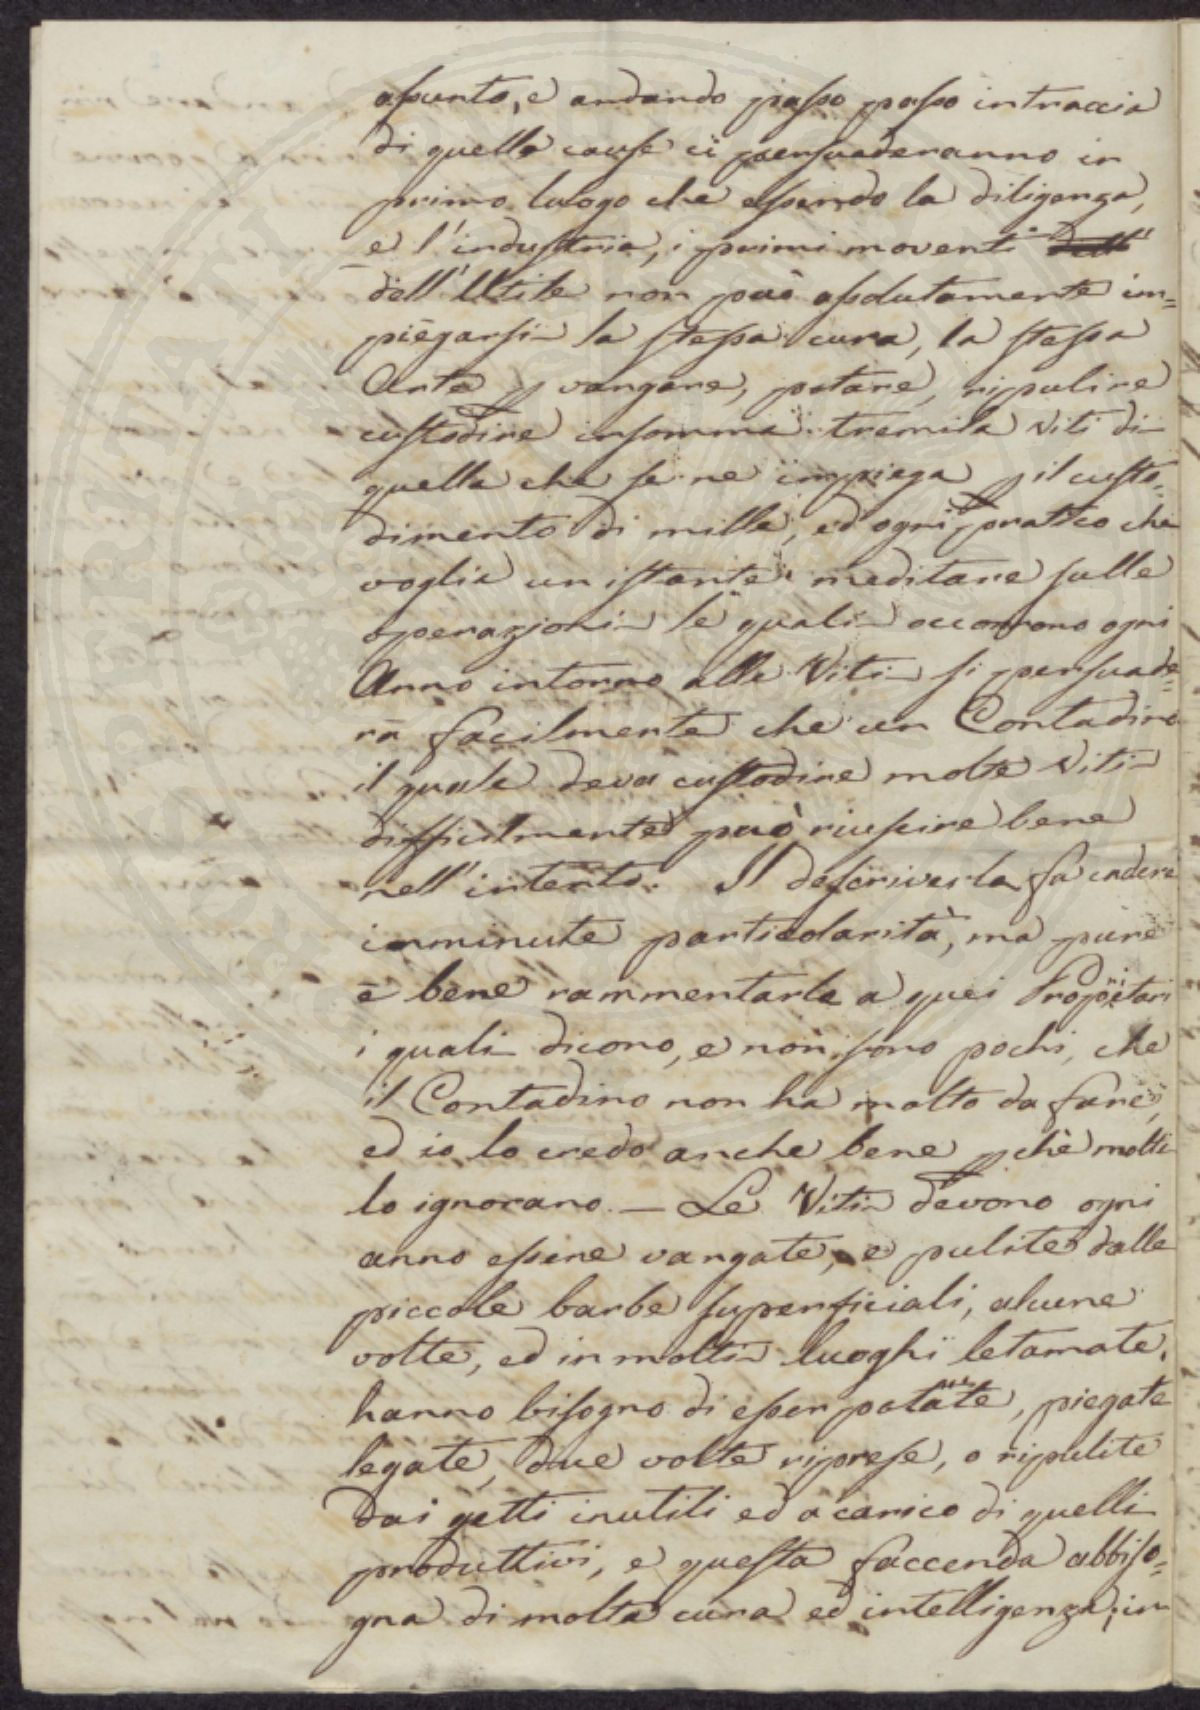 assunto, e andando passo passo intraccia
di quelle cause ci persuaderanno in
primo luogo che essendo la diligenza,
e l'industria, i primi moventi dell'
dell'Utile non può assolutamente im=
piegarsi la stessa cura, la stessa
Arte p vangare, potare, ripulire
custodire insomma tremila Viti di
quella che se ne impiega p il custo=
dimento di mille, ed ogni pratico che
voglia un istante meditare sulle
operazioni le quali occorrono ogni
Anno intorno alle Viti si persuade=
rà facilmente che un Contadino
il quale deva custodire molte Viti
difficilmente può riuscire bene
nell'intento. Il descriverla fa cadere
inminute particolarità, ma pure
è bene rammentarle a quei Propietari
i quali dicono, e non sono pochi, che
il Contadino non ha molto da fare,
ed io lo credo anche bene pchè molti
lo ignorano. — Le Viti devono ogni
anno essere vangate, e pulite dalle
piccole barbe superficiali, alcune
volte, ed in molti luoghi letamate.
hanno bisogno di esser potate, piegate
legate, due volte riprese, o ripulite
dai getti inutili ed a carico di quelli
produttivi, e questa faccenda abbiso=
gna di molta cura ed intelligenza; in